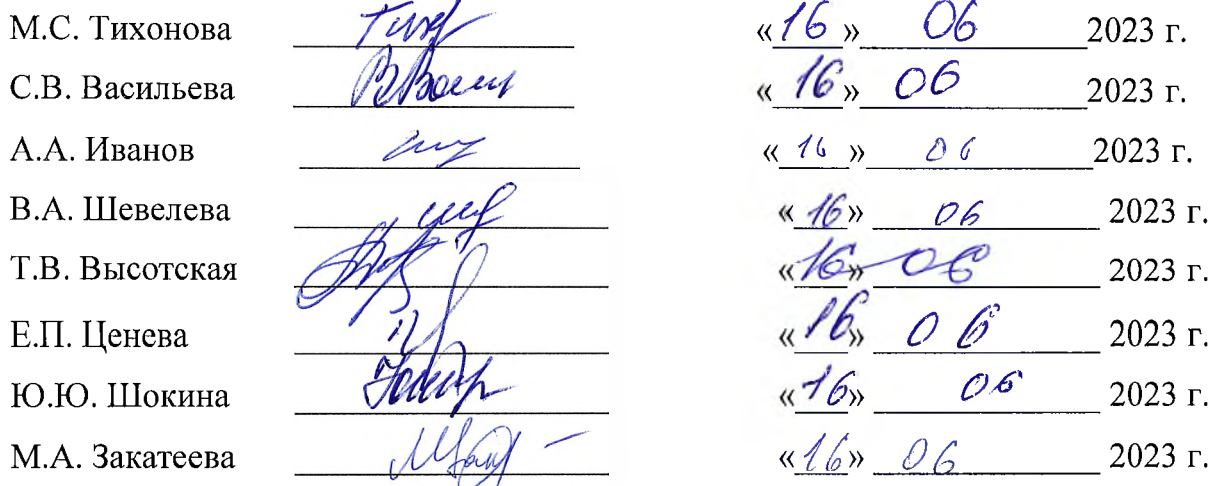 М.С. Тихонова «16» 06 2023 г.
С.В. Васильева «16» 06 2023 г.
А.А. Иванов «16» 06 2023 г.
В.А. Шевелева «16» 06 2023 г.
Т.В. Высотская «16» 06 2023 г.
Е.П. Ценева «16» 06 2023 г.
Ю.Ю. Шокина «16» 06 2023 г.
М.А. Закатеева «16» 06 2023 г.